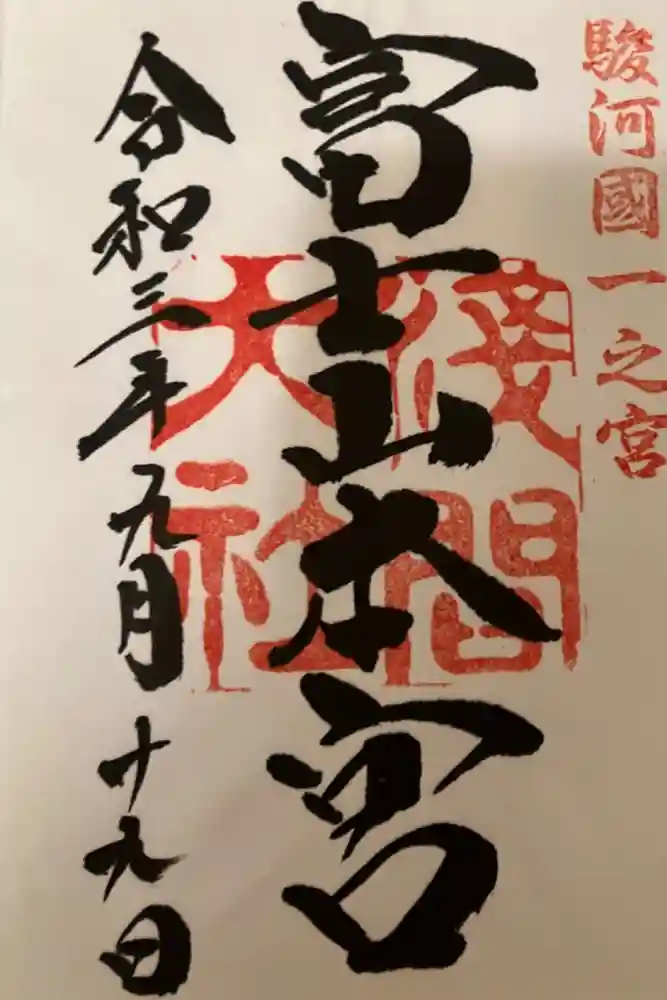 駿河國一之宮
富士山本宮
淺間大社
令和三年九月十九日